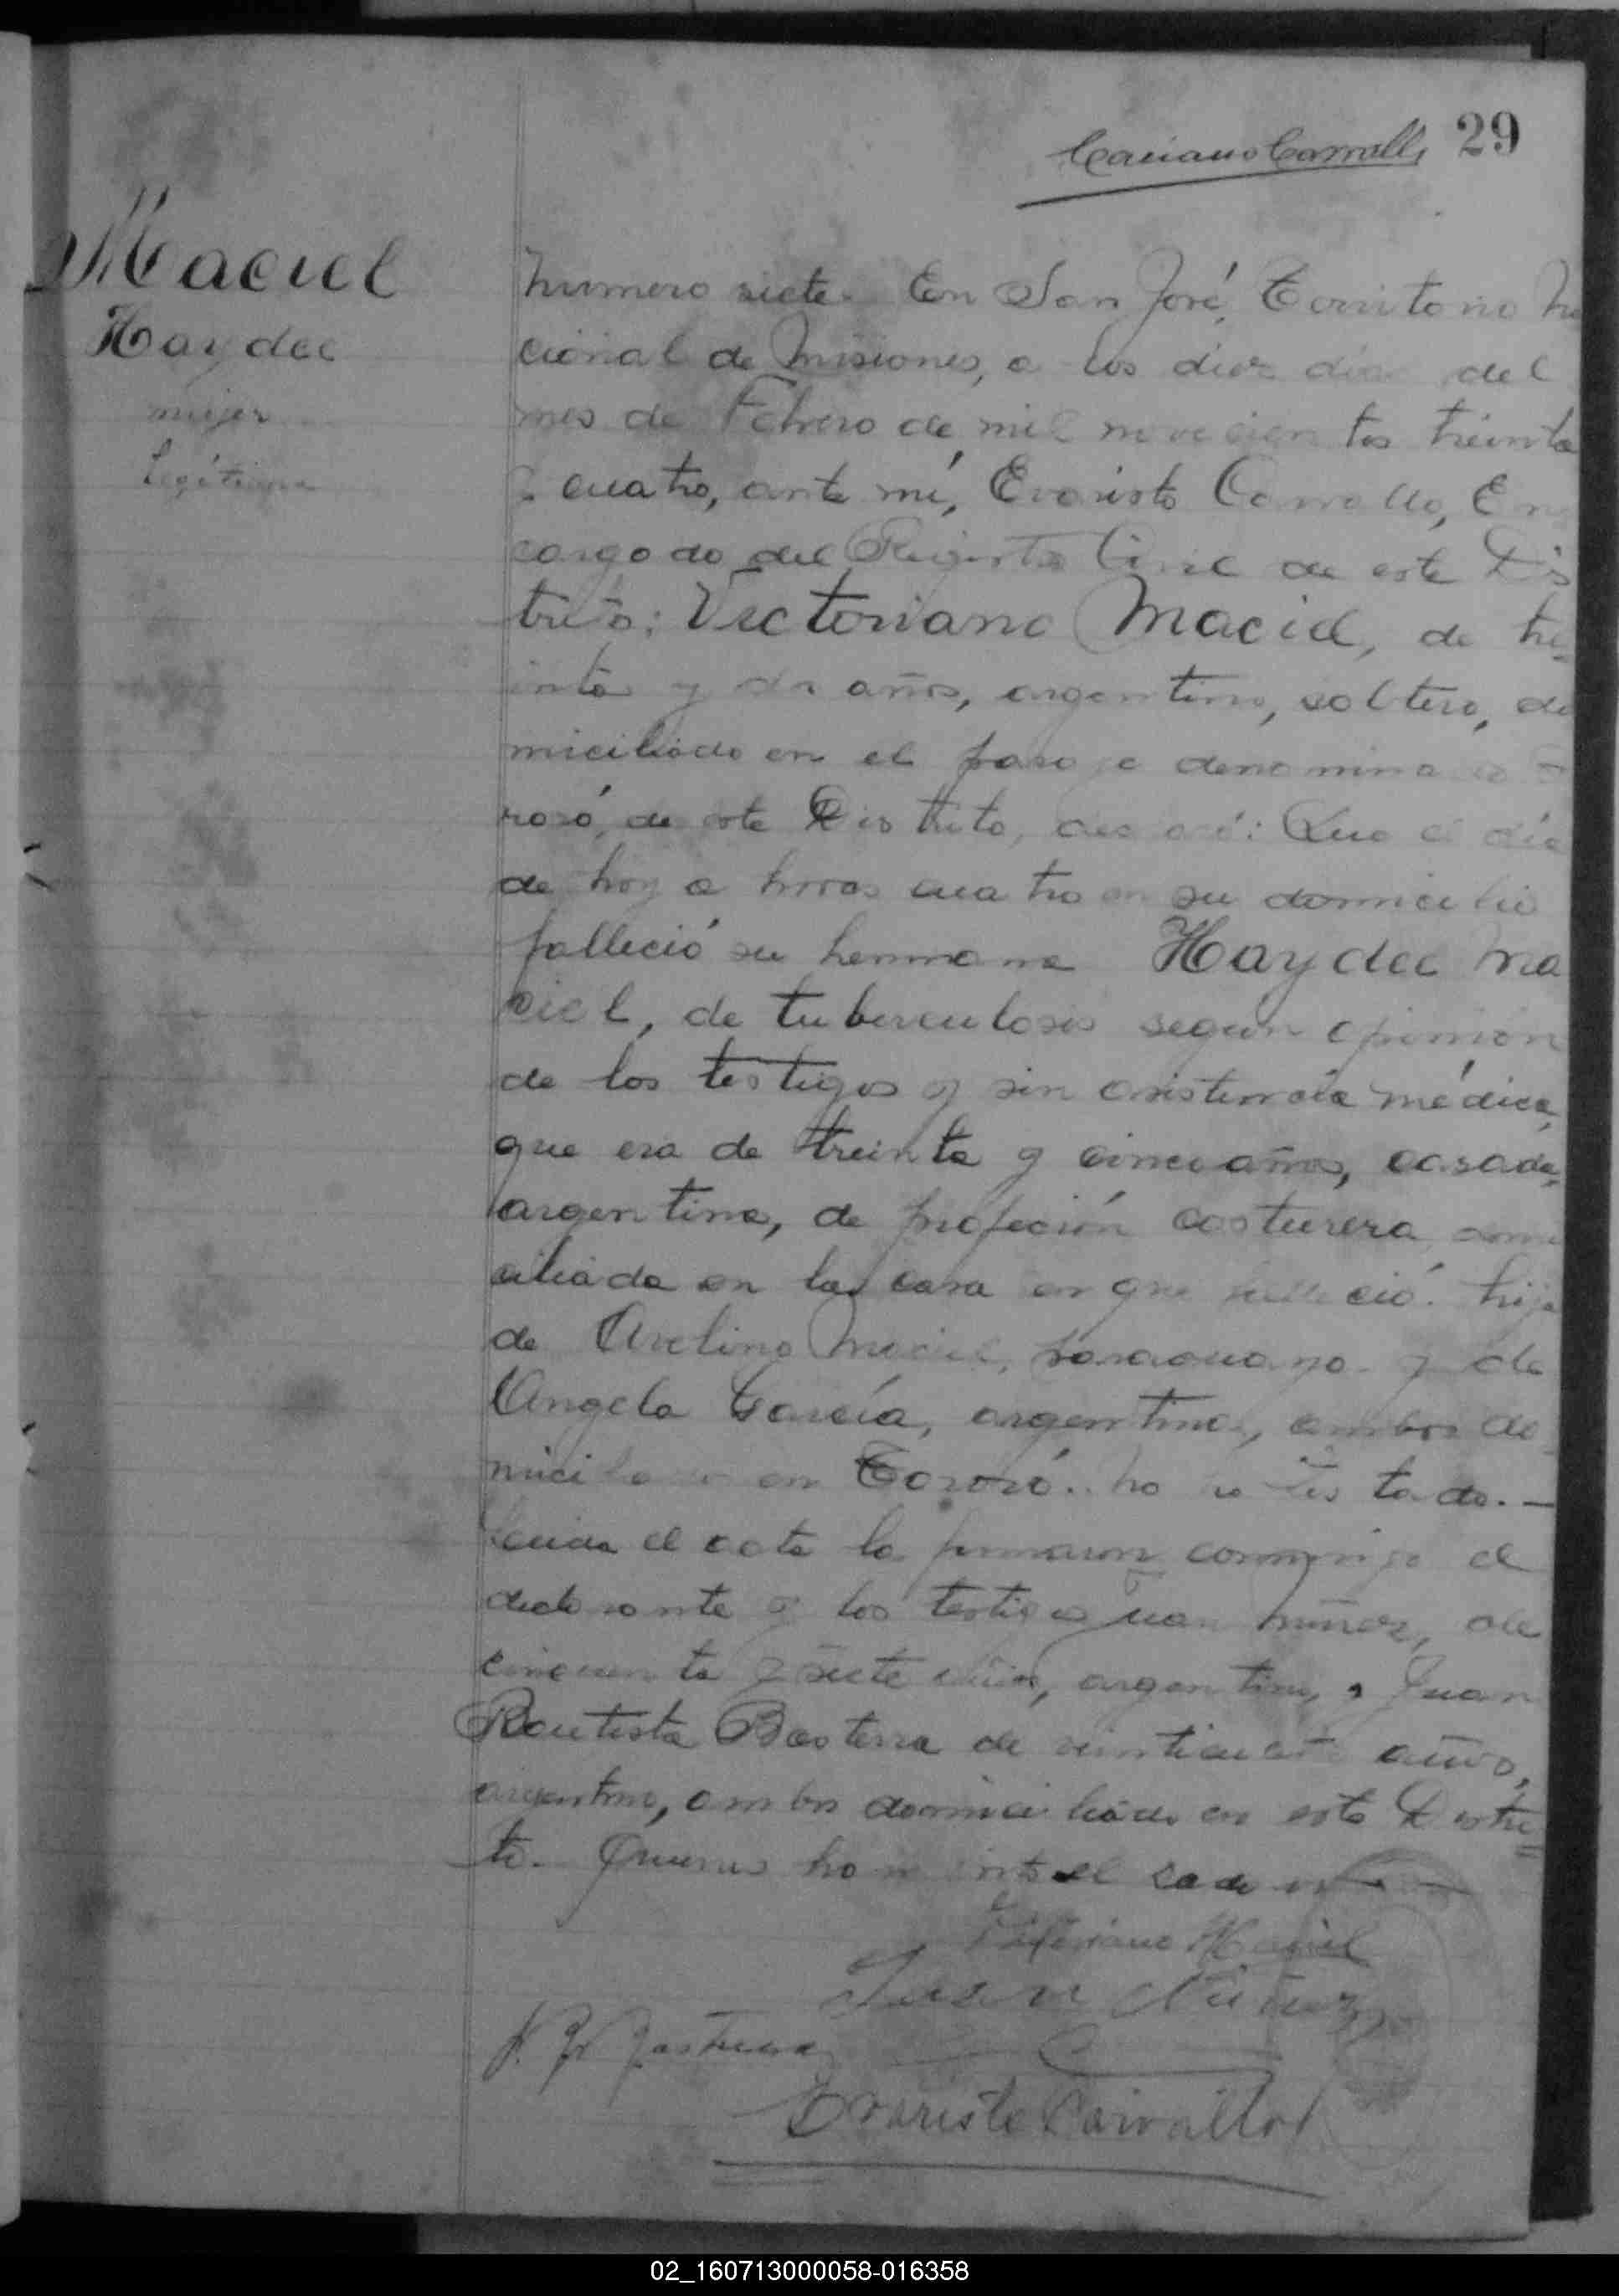 29
Maciel
Haydee
mujer
Legítima
Número siete. En San José, Territorio Na
cional de Misiones, a los diez días del
mes de Febrero de mil novecientos treinta
y cuatro, ante mí, Evaristo Carvallo, En
cargado del Registro Civil de este Dis
trito; Victoriano Maciel, de tre
inta y dos años, argentino, soltero, do
miciliado en el paraje denominado
roró, de este Distrito, declaró: Que el día
de hoy a horas cuatro en su domicilio
falleció su hermana Haydee Ma
ciel, de tuberculosis según opinión
de los testigos y sin asistencia médica,
que era de treinta y cinco años, casada,
argentina, de profeción costurera, domi
ciliada en la casa en que falleció. hija
de Avelino Maciel, paraguayo y de
Angela García, argentina, ambos do
miciliados en Tororó. No ha testado.—
Leida el acta la firmaron conmigo el
declarante y los testigos Juan Núñez, de
cincuenta y siete años, argentino, y Juan
Bautista Basterra de veinticuatro años,
argentino, ambos domiciliados en este Distri=
to. Quienes han visto el cadaver
Victoriano Maciel
Juan Núñez
J. B. Basterra
Evaristo Carvallo
02_160713000058-016358